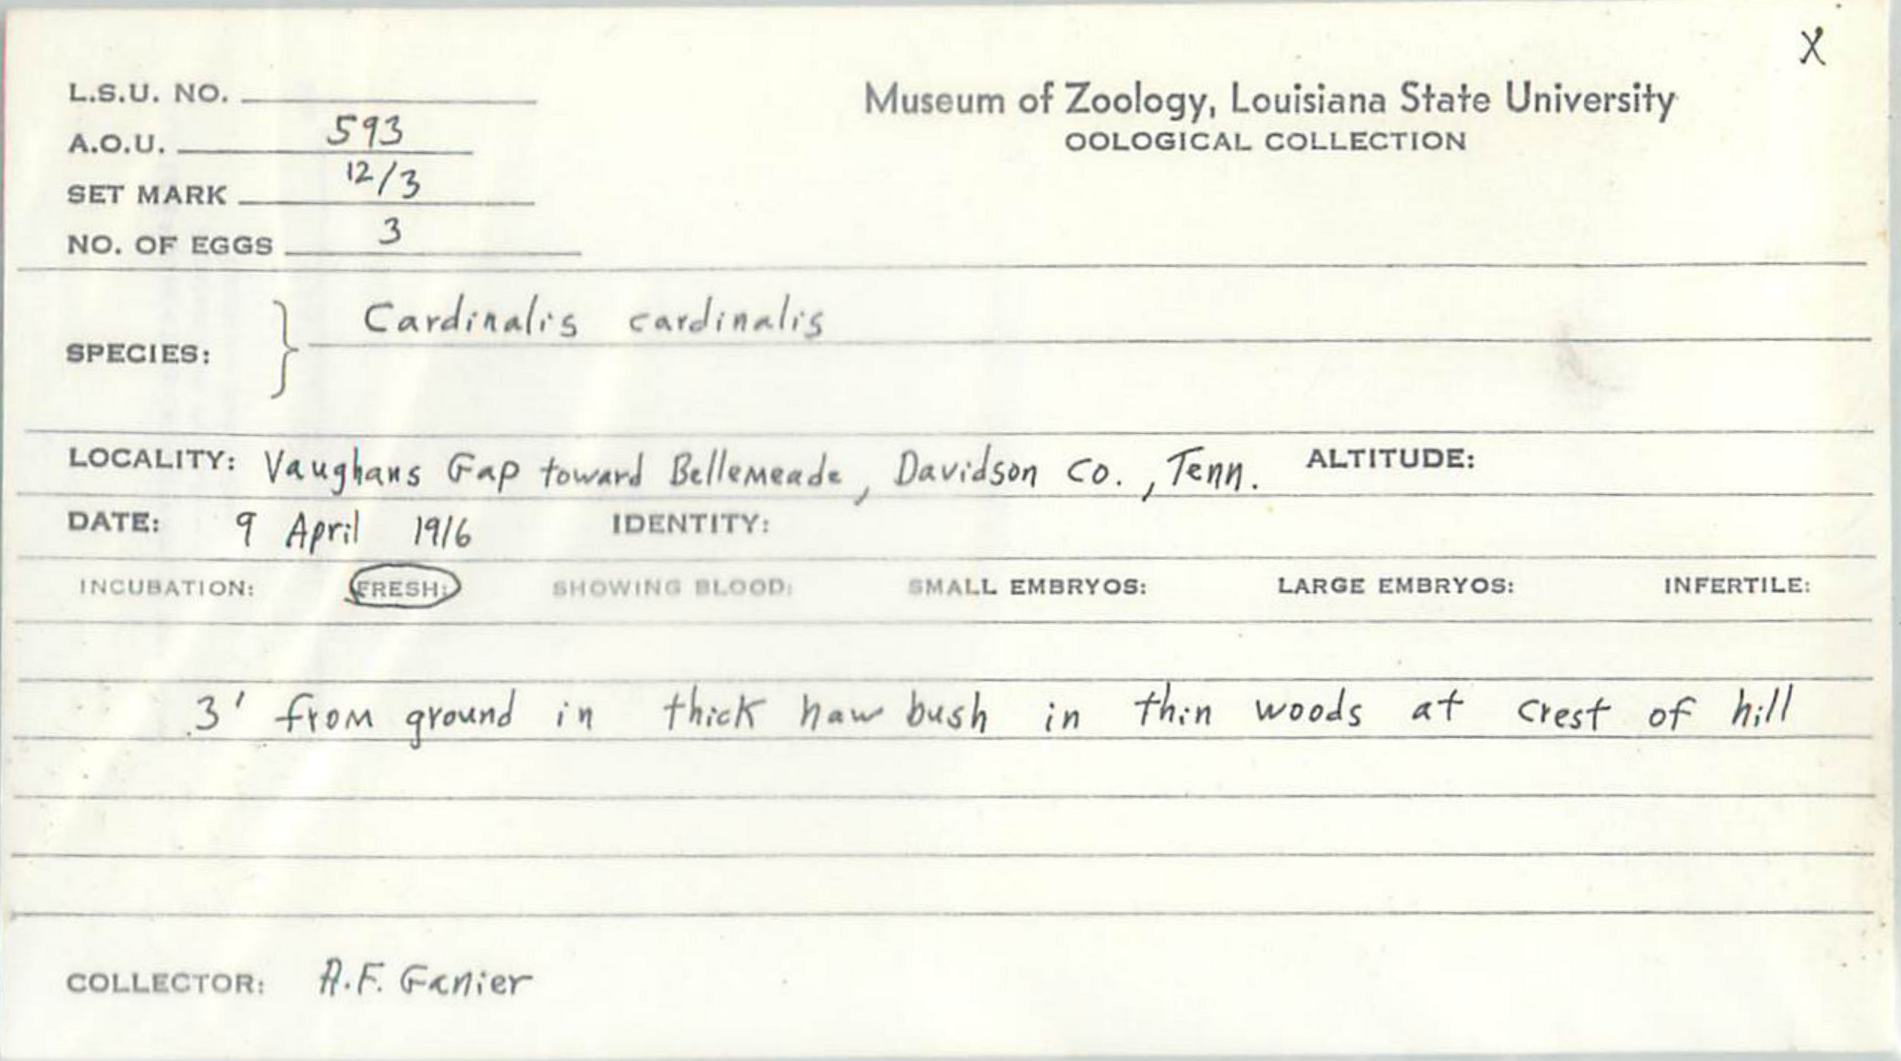 X
L.S.U. NO.
Museum of Zoology, Louisiana State University
OOLOGICAL COLLECTION
A.O.U. 593
SET MARK 12/3
NO. OF EGGS 3
SPECIES: Cardinalis cardinalis
LOCALITY: Vaughans Gap toward Bellemeade, Davidson Co., Tenn. ALTITUDE:
DATE: 9 April 1916 IDENTITY:
INCUBATION: FRESH: SHOWING BLOOD: SMALL EMBRYOS: LARGE EMBRYOS: INFERTILE:
3' from ground in thick haw bush in thin woods at crest of hill
COLLECTOR: A.F. Ganier